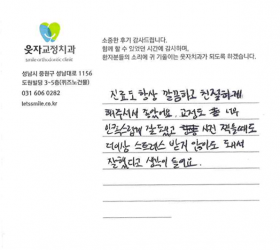 소중한 후기 감사드립니다.
함께 할 수 있었던 시간에 감사하며,
환자분들의 소리에 귀 기울이는 웃자치과가 되도록 하겠습니다.
웃자교정치과
smile orthodontic clinic
성남시 중원구 성남대로 1156
도원빌딩 3~5층(위즈노건물)
031 606 0282
letssmile.co.kr
진료도 항상 깔끔하고 친절하게
해주셔서 좋았어요. 교정도 너무
만족스럽게 잘 됐고 사진 찍을때도
더이상 스트레스 받지 않아도 돼서
잘했다고 생각이 들어요.